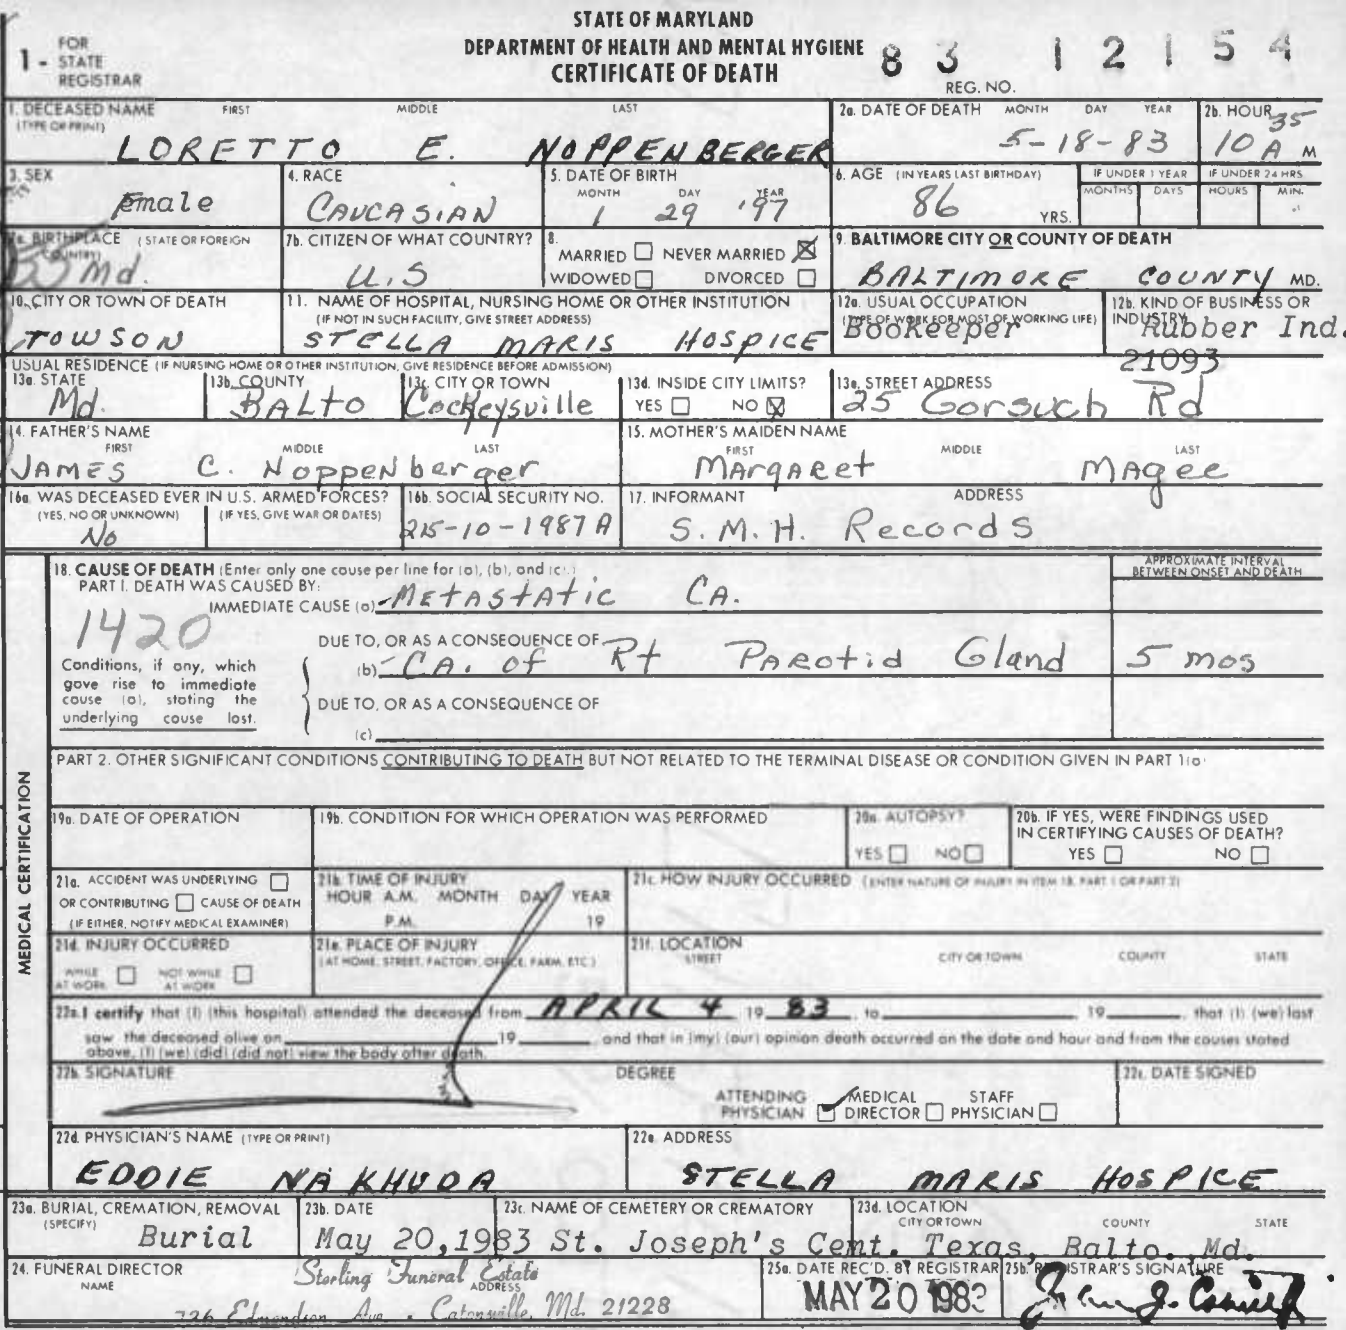 STATE OF MARYLAND
DEPARTMENT OF HEALTH AND MENTAL HYGIENE
CERTIFICATE OF DEATH
1 - FOR STATE REGISTRAR
83 12154
REG. NO.
1. DECEASED NAME FIRST MIDDLE LAST
(TYPE OR PRINT)
LORETTO E. NOPPENBERGER
2a. DATE OF DEATH MONTH DAY YEAR
5-18-83
2b. HOUR
10 35 A M
3. SEX
Female
4. RACE
CAUCASIAN
5. DATE OF BIRTH
MONTH DAY YEAR
1 29 '97
6. AGE (IN YEARS LAST BIRTHDAY)
86 YRS.
IF UNDER 1 YEAR
MONTHS DAYS
IF UNDER 24 HRS
HOURS MIN.
7a. BIRTHPLACE (STATE OR FOREIGN COUNTRY)
Md.
7b. CITIZEN OF WHAT COUNTRY?
U.S
8.
MARRIED ☐ NEVER MARRIED ☒
WIDOWED ☐ DIVORCED ☐
9. BALTIMORE CITY OR COUNTY OF DEATH
BALTIMORE COUNTY MD.
10. CITY OR TOWN OF DEATH
TOWSON
11. NAME OF HOSPITAL, NURSING HOME OR OTHER INSTITUTION
(IF NOT IN SUCH FACILITY, GIVE STREET ADDRESS)
STELLA MARIS HOSPICE
12a. USUAL OCCUPATION
(TYPE OF WORK FOR MOST OF WORKING LIFE)
Bookeeper
12b. KIND OF BUSINESS OR INDUSTRY
Rubber Ind.
USUAL RESIDENCE (IF NURSING HOME OR OTHER INSTITUTION, GIVE RESIDENCE BEFORE ADMISSION)
13a. STATE
Md.
13b. COUNTY
BALTO
13c. CITY OR TOWN
Cockeysville
13d. INSIDE CITY LIMITS?
YES ☐ NO ☒
13e. STREET ADDRESS
21093
25 Gorsuch Rd
14. FATHER'S NAME
FIRST MIDDLE LAST
JAMES C. Noppenberger
15. MOTHER'S MAIDEN NAME
FIRST MIDDLE LAST
MARgARet MAgee
16a. WAS DECEASED EVER IN U.S. ARMED FORCES?
(YES, NO OR UNKNOWN) (IF YES, GIVE WAR OR DATES)
No
16b. SOCIAL SECURITY NO.
215-10-1987A
17. INFORMANT ADDRESS
S.M.H. Records
MEDICAL CERTIFICATION
18. CAUSE OF DEATH (Enter only one cause per line for (a), (b), and (c).)
PART I. DEATH WAS CAUSED BY:
APPROXIMATE INTERVAL BETWEEN ONSET AND DEATH
IMMEDIATE CAUSE (a) - METASTATIC CA.
1420
DUE TO, OR AS A CONSEQUENCE OF
(b) - CA. of Rt PAROtid Gland 5 mos
Conditions, if any, which
gave rise to immediate
cause (a), stating the
underlying cause last.
DUE TO, OR AS A CONSEQUENCE OF
(c)
PART 2. OTHER SIGNIFICANT CONDITIONS CONTRIBUTING TO DEATH BUT NOT RELATED TO THE TERMINAL DISEASE OR CONDITION GIVEN IN PART 1(a)
19a. DATE OF OPERATION
19b. CONDITION FOR WHICH OPERATION WAS PERFORMED
20a. AUTOPSY?
YES ☐ NO ☐
20b. IF YES, WERE FINDINGS USED
IN CERTIFYING CAUSES OF DEATH?
YES ☐ NO ☐
21a. ACCIDENT WAS UNDERLYING ☐
OR CONTRIBUTING ☐ CAUSE OF DEATH
(IF EITHER, NOTIFY MEDICAL EXAMINER)
21b. TIME OF INJURY
HOUR A.M. MONTH DAY YEAR
P.M. 19
21c. HOW INJURY OCCURRED (ENTER NATURE OF INJURY IN ITEM 18, PART 1 OR PART 2)
21d. INJURY OCCURRED
WHILE AT WORK ☐ NOT WHILE AT WORK ☐
21e. PLACE OF INJURY
(AT HOME, STREET, FACTORY, OFFICE, FARM, ETC.)
21f. LOCATION
STREET CITY OR TOWN COUNTY STATE
22a. I certify that (I) (this hospital) attended the deceased from APRIL 4 19 83, to 19 , that (I) (we) last
saw the deceased alive on 19 , and that in (my) (our) opinion death occurred on the date and hour and from the causes stated
above, (I) (we) (did) (did not) view the body after death.
22b. SIGNATURE
DEGREE
ATTENDING PHYSICIAN ☑ MEDICAL DIRECTOR ☐ STAFF PHYSICIAN ☐
22c. DATE SIGNED
22d. PHYSICIAN'S NAME (TYPE OR PRINT)
EDDIE NAKHUDA
22e. ADDRESS
STELLA MARIS HOSPICE
23a. BURIAL, CREMATION, REMOVAL
(SPECIFY)
Burial
23b. DATE
May 20,1983
23c. NAME OF CEMETERY OR CREMATORY
St. Joseph's Cemt.
23d. LOCATION
CITY OR TOWN COUNTY STATE
Texas, Balto. Md.
24. FUNERAL DIRECTOR
NAME ADDRESS
Sterling Funeral Estate
736 Edmondson Ave. Catonsville, Md. 21228
25a. DATE REC'D. BY REGISTRAR
MAY 20 1983
25b. REGISTRAR'S SIGNATURE